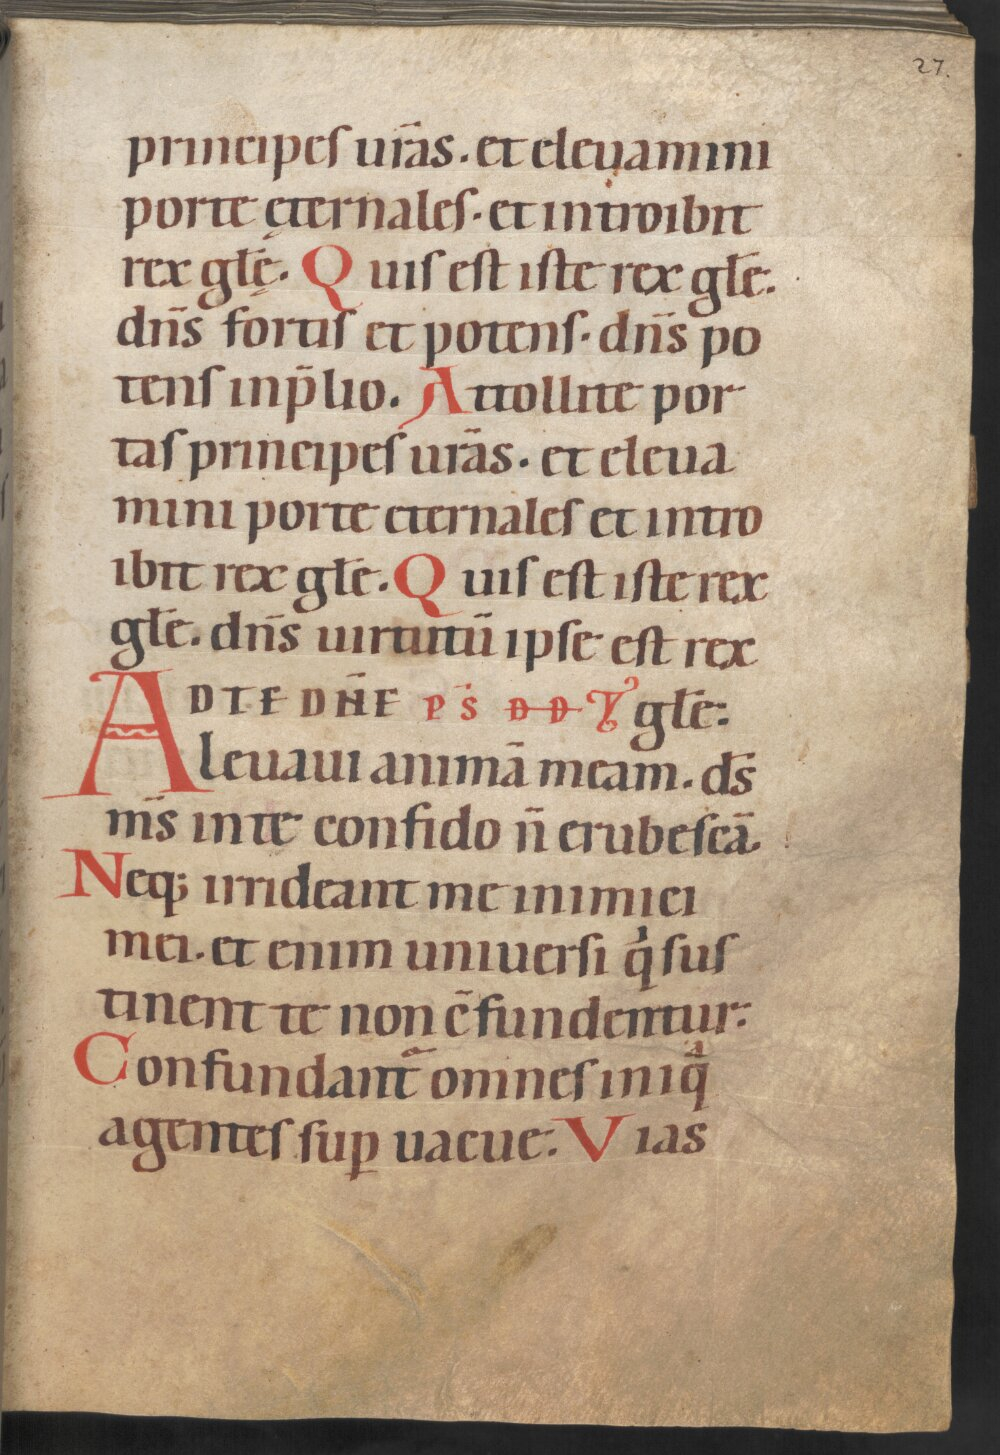 27.
principes ur̄as. et eleuamini
porte ęternales. et introibit
rex gl̄ę. Quis est iste rex gl̄e:
dn̄s fortis et potens. dn̄s po
tens inp̄lio. Attollite por
tas principes ur̄as. et eleua
mini porte eternales et intro
ibit rex gl̄e. Quis est iste rex
gl̄e. dn̄s uirtutū ipse est rex
AD TE DN̄E PS̄ DD gl̄e:
leuaui animā meam. ds̄
ms̄ inte confido n̄ erubescā.
Neq; irrideant me inimici
mei. et enim uniuersi qͥ sus
tinent te non c̄fundentur:
Confundant̄ omnes iniqͣ
agentes suꝑ uacue: Vias